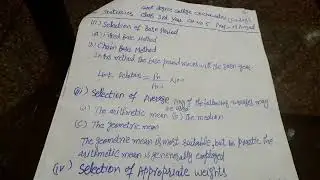 Govt degree college
Statistics Class 3rd Year
(ii) Selection of Base Period
(a) Fixed Base Method
(b) Chain Base Method
In this method the base period varies with the
Link Relative = Pn / Pn-1 × 100
(iii) Selection of Average Any of the following averages may be used
(a) The arithmetic mean (b) The median
(c) The geometric mean
The geometric mean is most suitable, but in practice the
arithmetic mean is generally employed
(iv) Selection of Appropriate weights